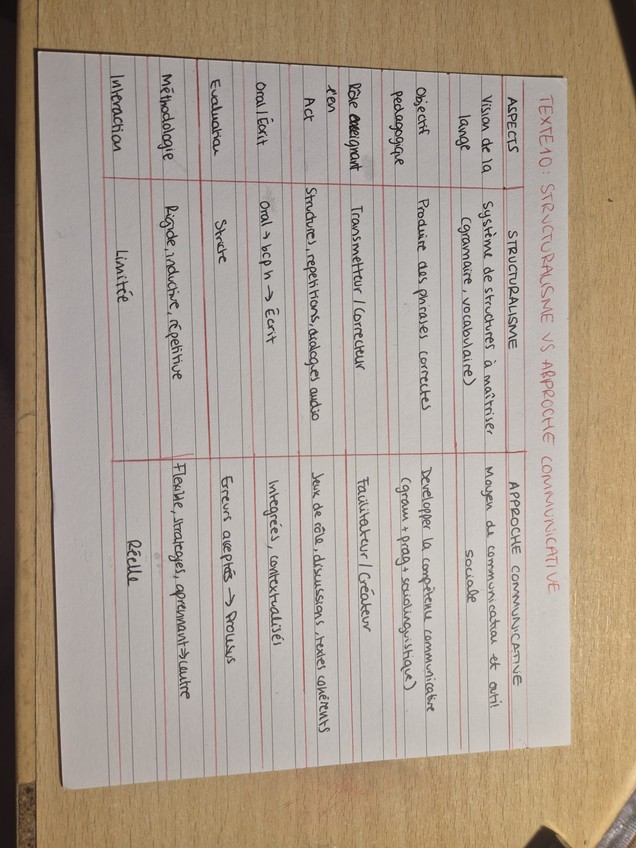 TEXTE 10: STRUCTURALISME VS APPROCHE COMMUNICATIVE
ASPECTS STRUCTURALISME APPROCHE COMMUNICATIVE
Vision de la Système de structures à maîtriser Moyen de communication et outil
lange (grammaire, vocabulaire) sociale
Objectif Produire des phrases correctes Développer la compétence communicative
pedagogique (gram + prag + sociolinguistique)
Rôle enseignant Transmetteur / Correcteur Facilitateur / Créateur
Act Structures, repetitions, dialogues audio Jeux de rôle, discussions, textes cohérents
Oral / Écrit Oral → bcp h → Écrit Integrées, contextualisés
Evaluation Stricte Erreurs aceptées → Prousus
Méthodologie Rigide, inductive, répetitive Flexible, strategies, aprennant → centre
Interaction Limitée Réelle